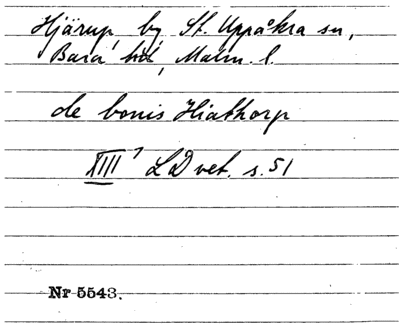 Hjärup, by, St. Uppåkra sn,
Bara hd, Malm. l.
de bonis Hiathorp
XIII⁷ LD vet. s. 51
Nr 5543.